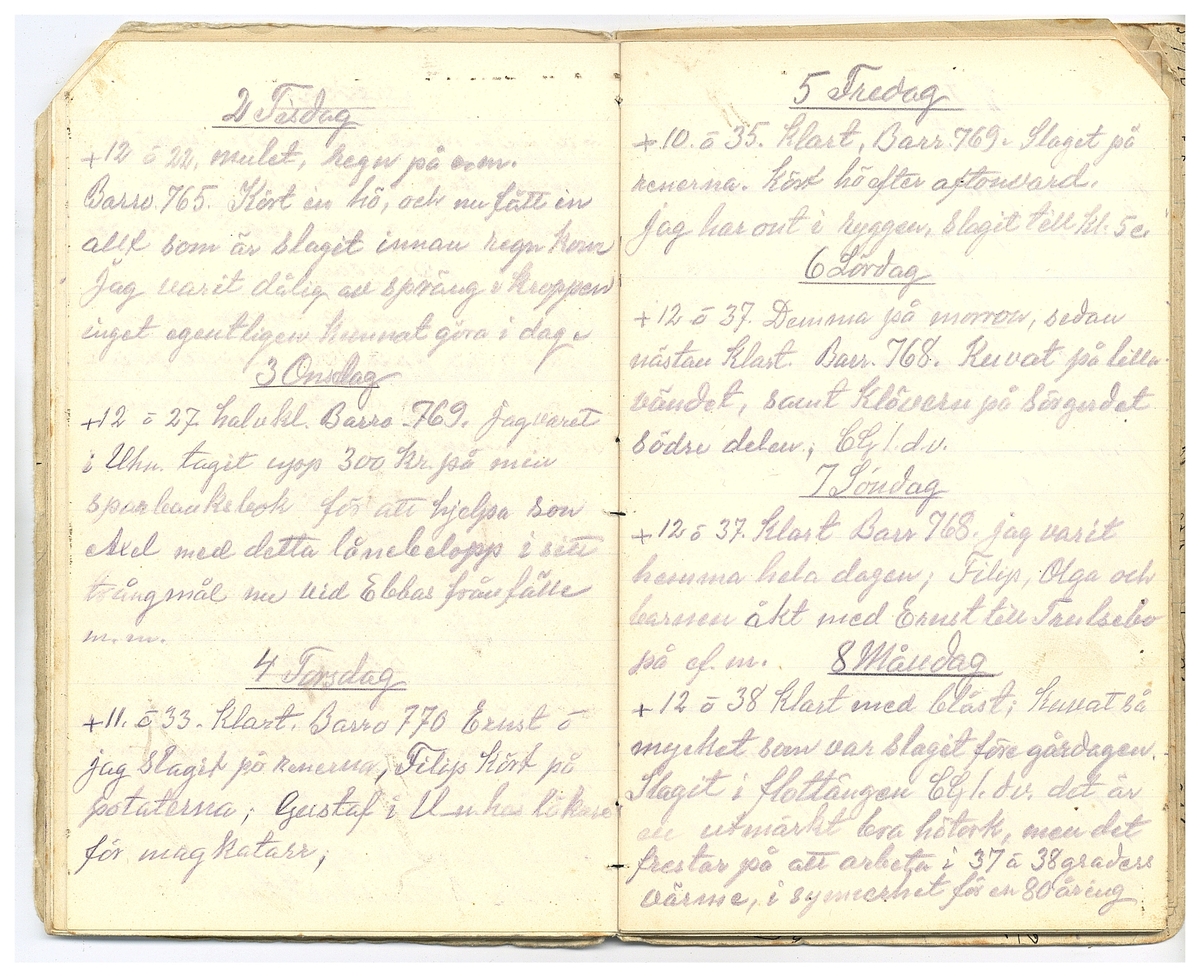 2 Tisdag
+12 ō 22, mulet, regn på e.m.
Barro. 765. Kört in hö, och nu fått in
allt som är slagit innan regn kom
Jag varit dålig av spräng i kroppen
inget egentligen kunnat göra i dag.
3 Onsdag
+12 ō 27 halvkl. Barro 769. jag varet
i Uhn. tagit upp 300 Kr. på min
sparbanksbok för att hjelpa son
Axel med detta lånebelopp i sitt
trångmål nu vid Ebbas frånfälle
m.m.
4 Torsdag
+11. ō 33. Klart. Barro 770 Ernst ō
jag slagit på renerna, Filip Kört på
potaterna; Gustaf i U_n hos läkare
för mag katarr;
5 Fredag
+10. ō 35. Klart, Barr. 769. Slaget på
renerna. Kört hö efter aftonvard.
Jag har ont i ryggen, slagit till kl. 5 e.
6 Lördag
+12 ō 37. Demma på morron, sedan
nästan Klart. Barr. 768. Kuvat på lilla
vändet, samt Klövern på
södre delen;
7 Söndag
+12 ō 37. Klart Barr 768. jag varit
hemma hela dagen; Filip, Olga och
barnen åkt med Ernst till Trulsebo
på ef. m.
8 Måndag
+12 ō 38 Klart med blåst; Kuvat så
mycket som var slagit före gårdagen.
Slagit i flottängen det är
en utmärkt bra hötork, men det
frestar på att arbeta i 37 à 38 graders
värme, i synnerhet för en 80 åring